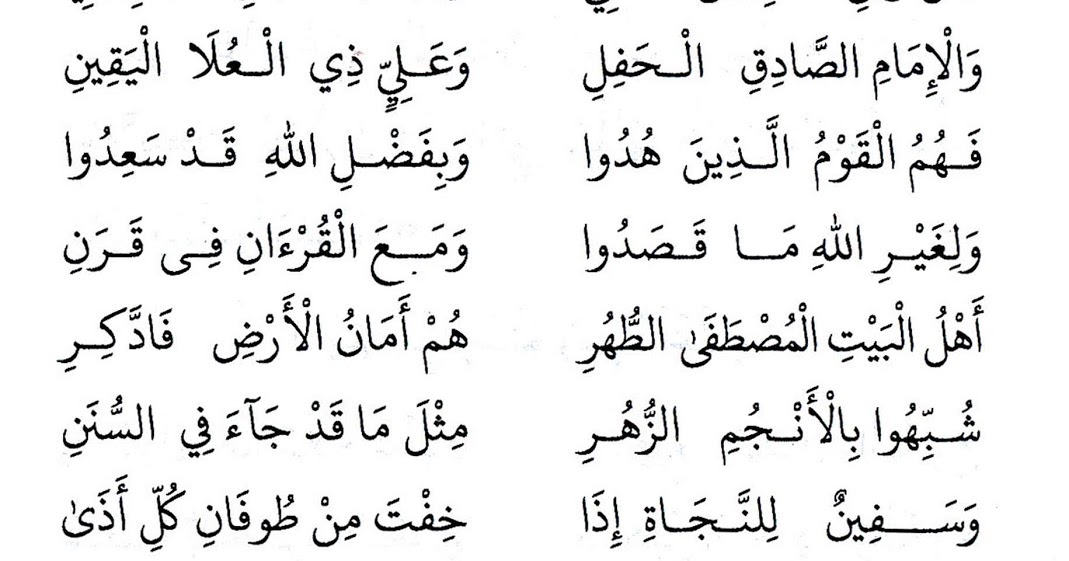 وَالْإِمَامِ الصَّادِقِ الْحَفِلِ وَعَلِيٍّ ذِي الْعُلَا الْيَقِينِ
فَهُمُ الْقَوْمُ الَّذِينَ هُدُوا وَبِفَضْلِ اللهِ قَدْ سَعِدُوا
وَلِغَيْرِ اللهِ مَا قَصَدُوا وَمَعَ الْقُرْءَانِ فِى قَرَنِ
أَهْلُ الْبَيْتِ الْمُصْطَفَىٰ الطُّهُرِ هُمْ أَمَانُ الْأَرْضِ فَادَّكِرِ
شُبِّهُوا بِالْأَنْجُمِ الزُّهُرِ مِثْلَ مَا قَدْ جَآءَ فِي السُّنَنِ
وَسَفِينٌ لِلنَّجَاةِ إِذَا خِفْتَ مِنْ طُوفَانِ كُلِّ أَذَىٰ